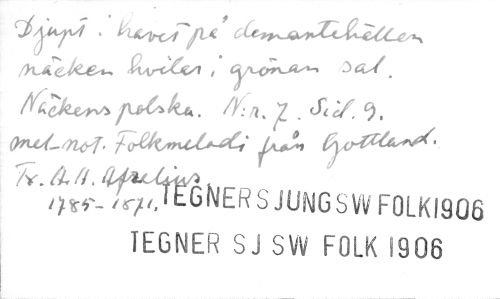 Djupt i havet på demantehällen
näcken hvilar i grönan sal.
Näckens polska. N:r. 7. Sid. 9.
mel-not. Folkmelodi från Gottland.
Tr. A.A. Afzelius
1785-1871.
TEGNER S JUNG SW FOLK 1906
TEGNER SJ SW FOLK 1906